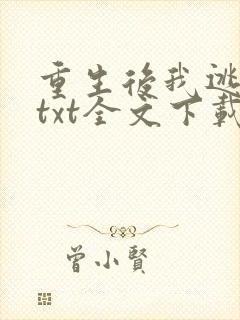 重生後我逃
txt全文下載
曾小賢